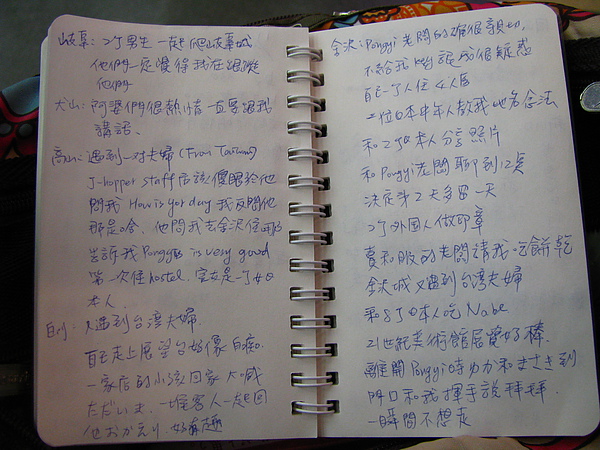 岐阜：2个男生一起爬岐阜城
他們一定覺得我在跟蹤
他們
犬山：阿婆們很熱情一直要跟我
講話、
高山：遇到一对夫婦 (From Taiwan)
J-hopper staff 应該傻眼於他
問我 How is your day 我反問他
那是啥、他問我去金沢住哪
告訴我 Pongyi is very good
第一次住hostel. 室友是一个女日
本人.
白川：又遇到台湾夫婦.
自己走上展望台好像白痴.
一家店的小孩回家大喊
ただいま. 一堆客人一起回
他おかえり. 好有趣
金沢：Pongyi 老闆的確很親切,
不過我幽默感很疑惑
自己一个人住4人房
二位日本中年人教我地名念法
和2个日本人分享照片
和Pongyi老闆聊到12点
決定第2天多留一天
2个外国人做印章
賣和服的老闆請我吃餅乾
金沢城又遇到台湾夫婦
和8个日本人吃Nabe
21世紀美術館展覽好棒.
離開Pongyi時ゆか和まさき到
門口和我揮手說拜拜.
一瞬間不想走